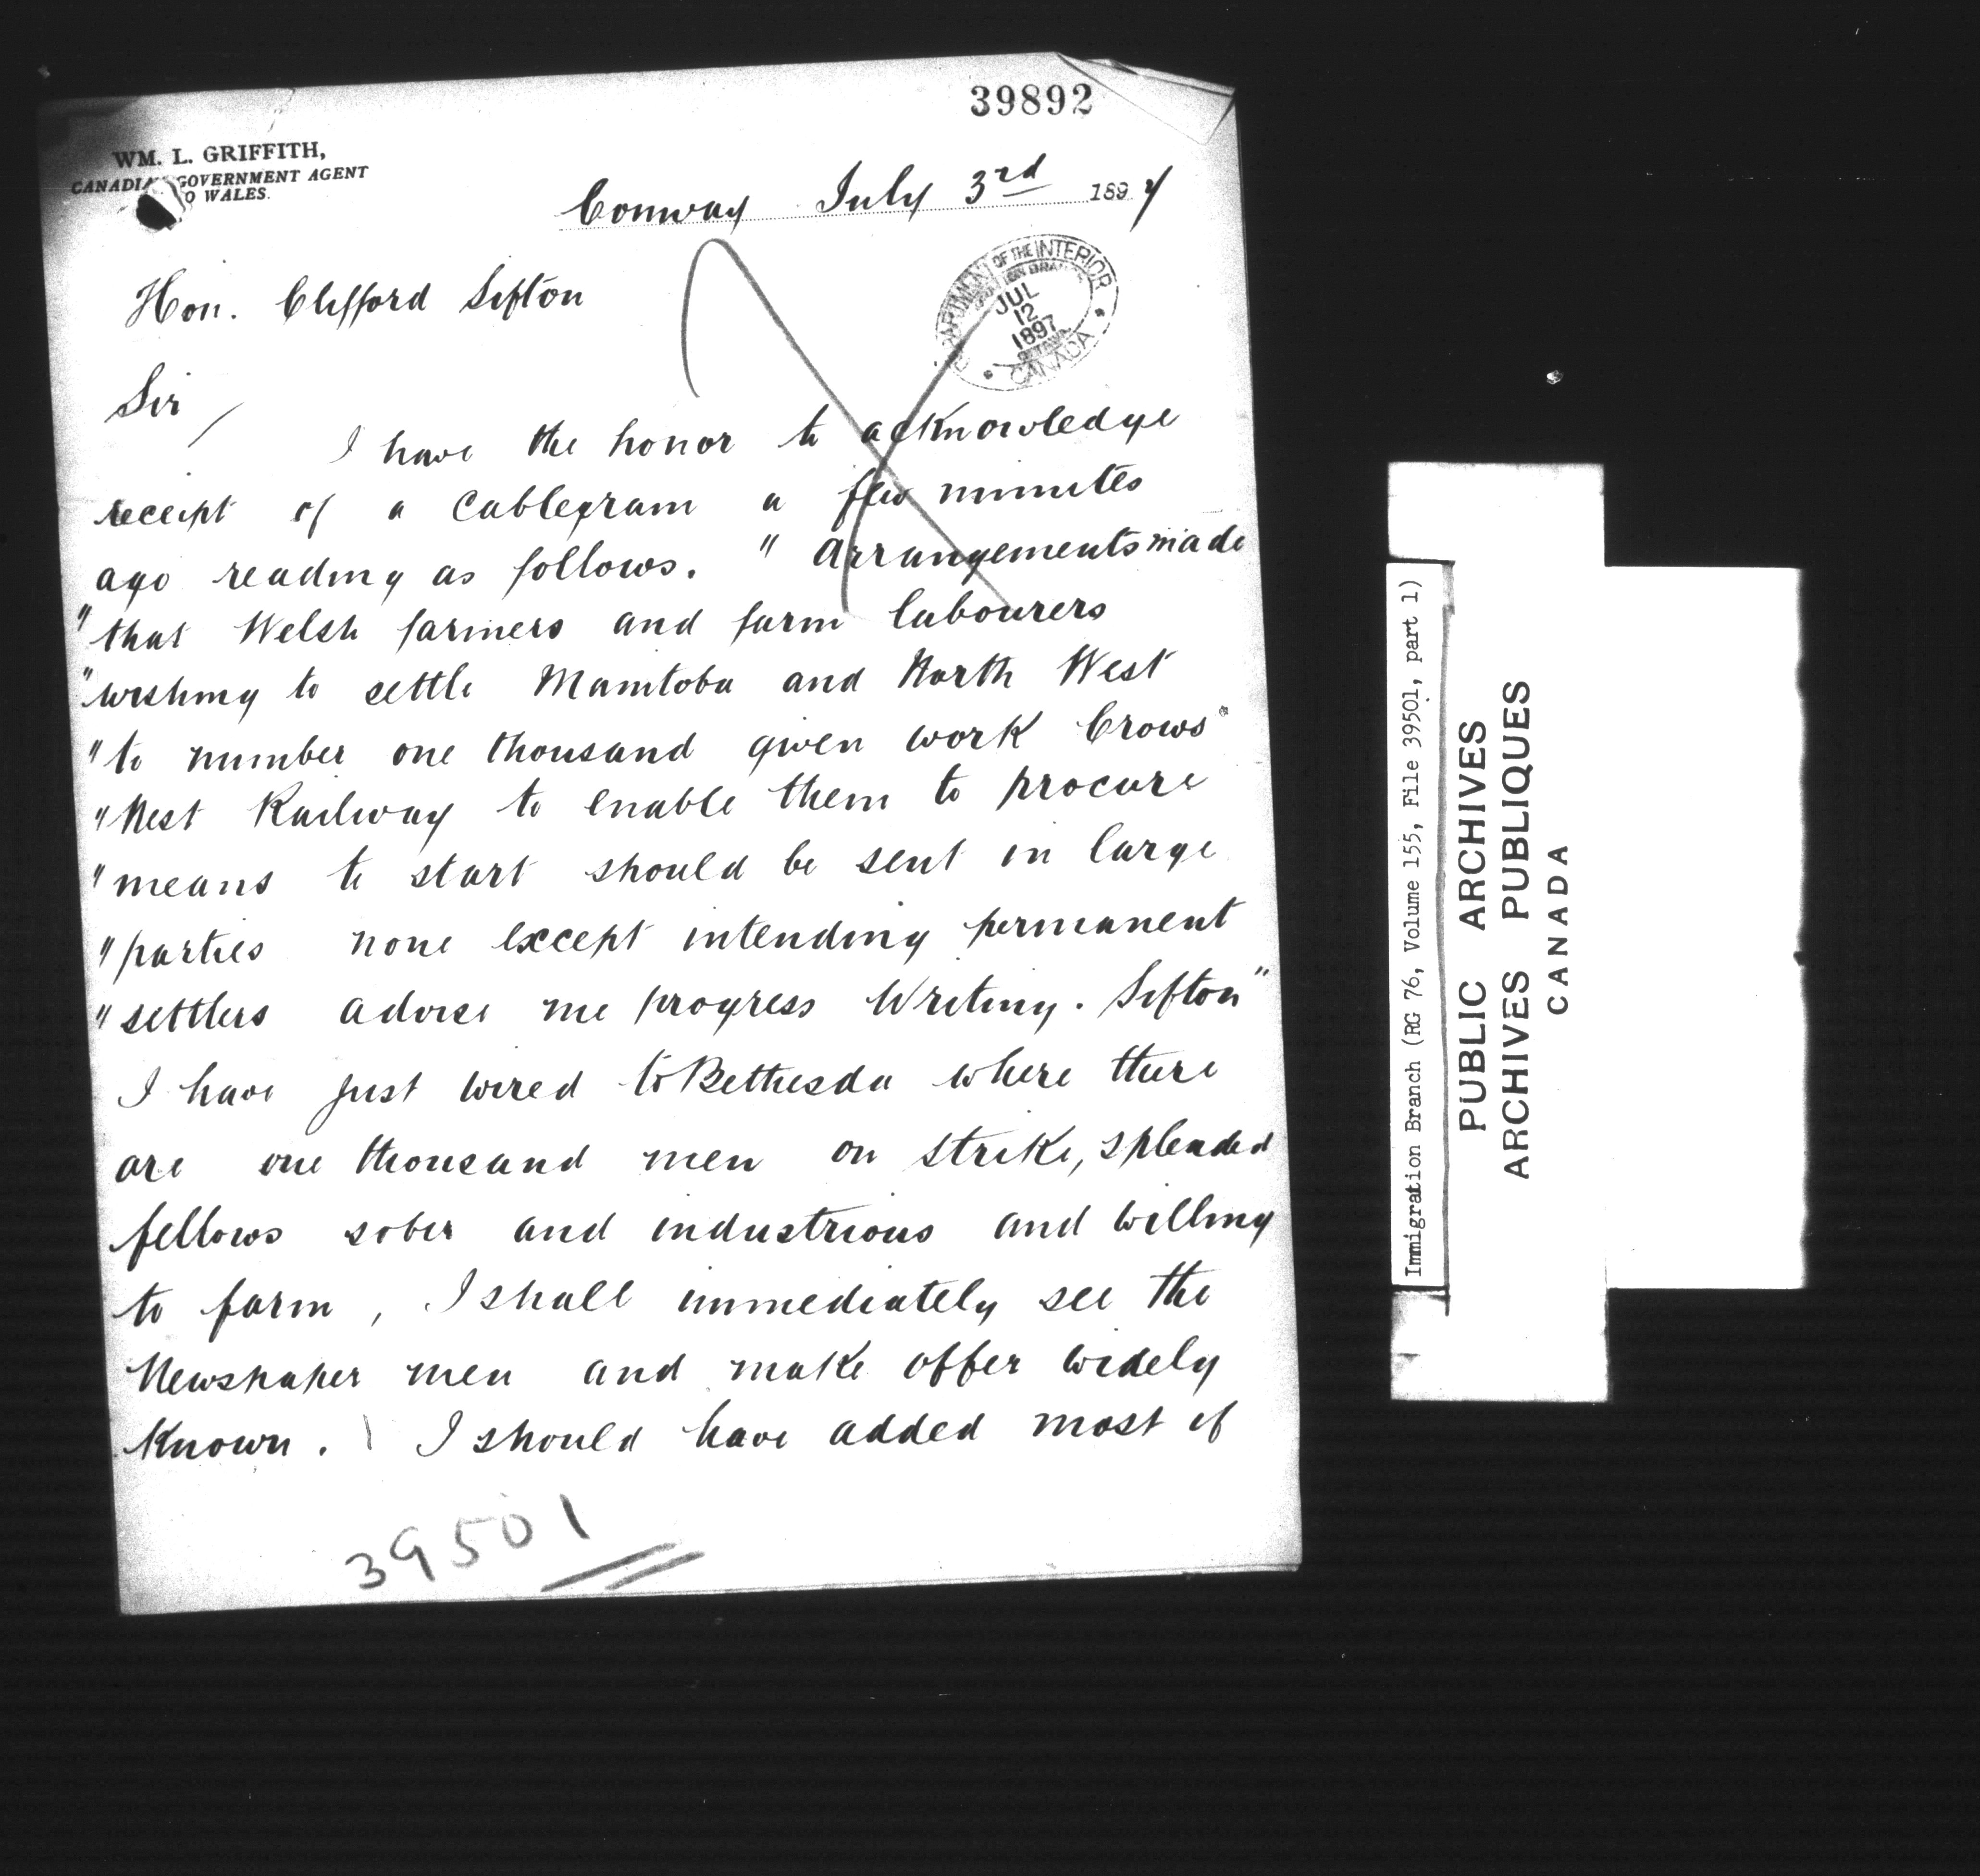 39892
WM. L. GRIFFITH,
CANADIAN GOVERNMENT AGENT
TO WALES.
Conway July 3rd 1897
DEPARTMENT OF THE INTERIOR
JUL
12
1897
OTTAWA
CANADA
Hon. Clifford Sifton
Sir
I have the honor to acknowledge
receipt of a Cablegram a few minutes
ago reading as follows. " Arrangements made
" that Welsh farmers and farm labourers
" wishing to settle Manitoba and North West
" to number one thousand given work Crows
" Nest Railway to enable them to procure
" means to start should be sent in large
" parties none except intending permanent
" settlers advise me progress Writing. Sifton"
I have just wired to Bethesda where there
are one thousand men on strike, splended
fellows sober and industrious and willing
to farm, I shall immediately see the
Newspaper men and make offer widely
Known. I should have added most of
39501
Immigration Branch (RG 76, Volume 155, File 39501, part 1)
PUBLIC ARCHIVES
ARCHIVES PUBLIQUES
CANADA